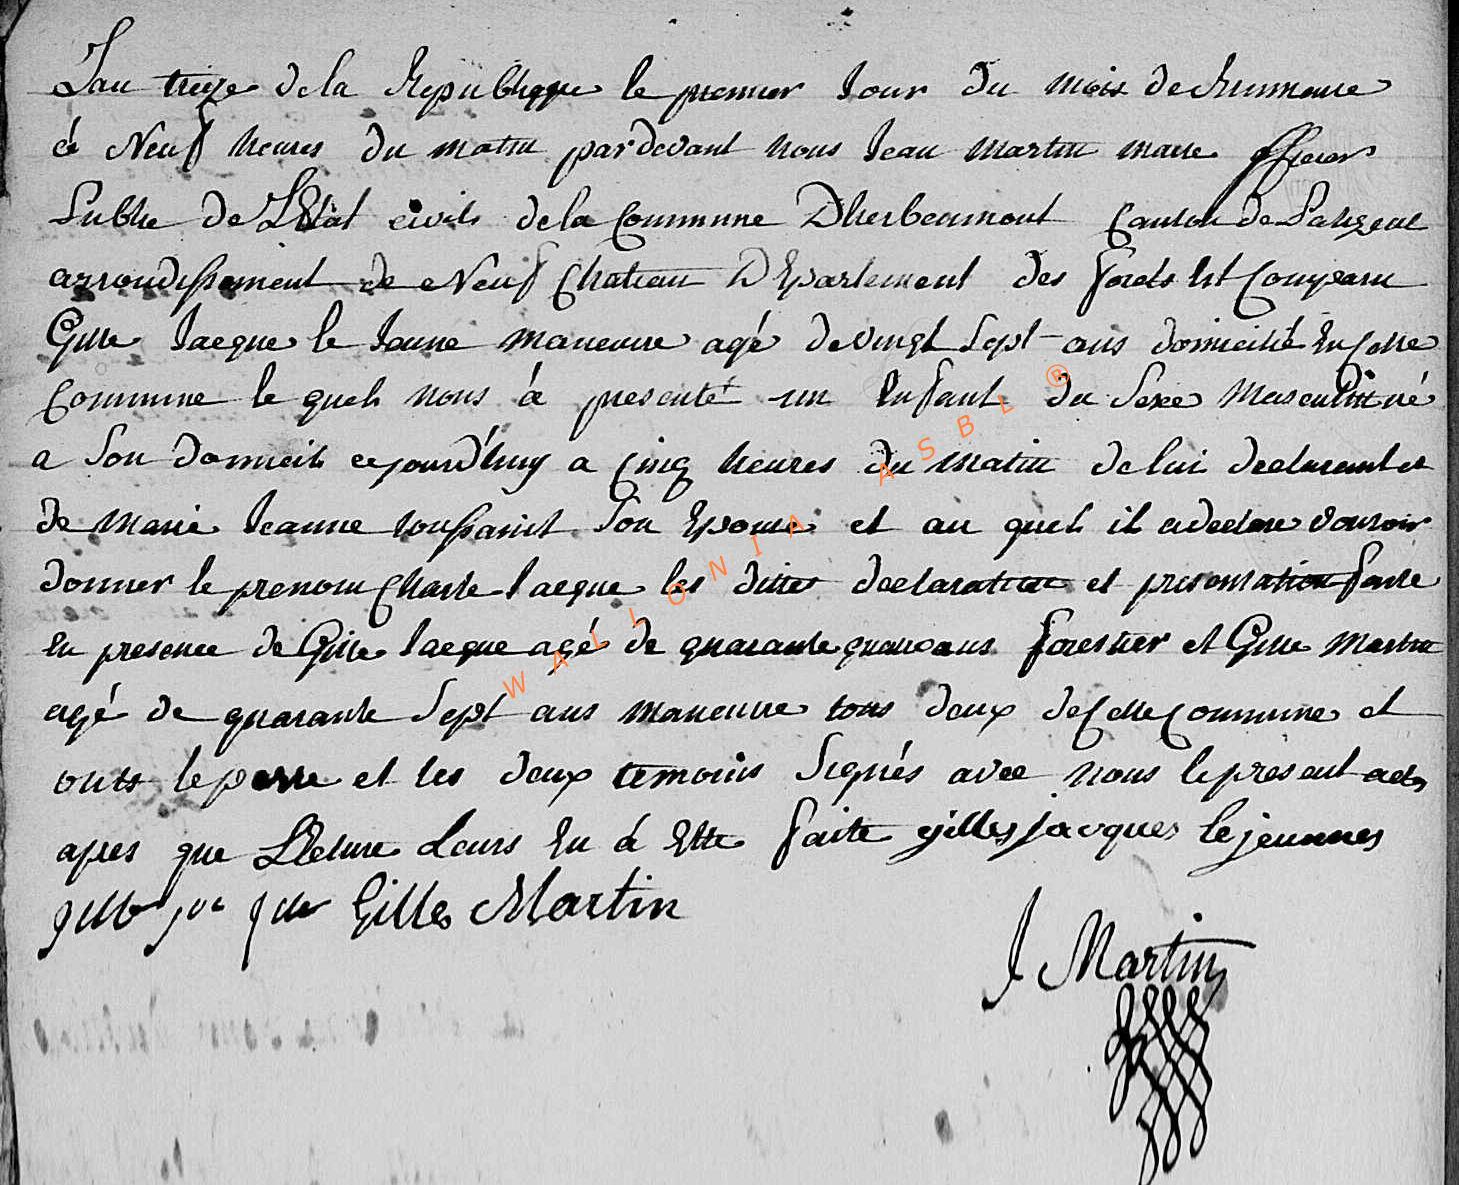 L'an treize de la Republique le premier Jour du mois de Brumaire
à Neuf heures du matin pardevant nous Jean Martin maire officier
Public de L'Etat civile de la Commune D'herbeumont Canton de Paliseul
arrondissement de Neuf Chateau Département des forets Est Comparu
Gille Jacque le Jeune maneuvre agé de vingt Sept ans domicilié En Cette
Commune le quel nous à presenté un Enfant du Sexe Masculin né
a Son domicile cejourd'huy a Cinq heures du matin de lui declarant et
de Marie Jeanne toussaint Son Epouse et au quel il a declare vouloir
donner le prenom Charle Jacque les dittes declaration et presentation faite
En presence de Gille Jacque agé de quarante quatre ans forestier et Gille Martin
agé de quarante Sept ans maneuvre tous deux de Cette Commune et
onts le perre et les deux temoins Signés avec nous le present acte
apres que LEcture Leurs En à Ette faite gilles jacques le jeunnes
Gilles Martin
J Martin
WALLONIA ASBL ®